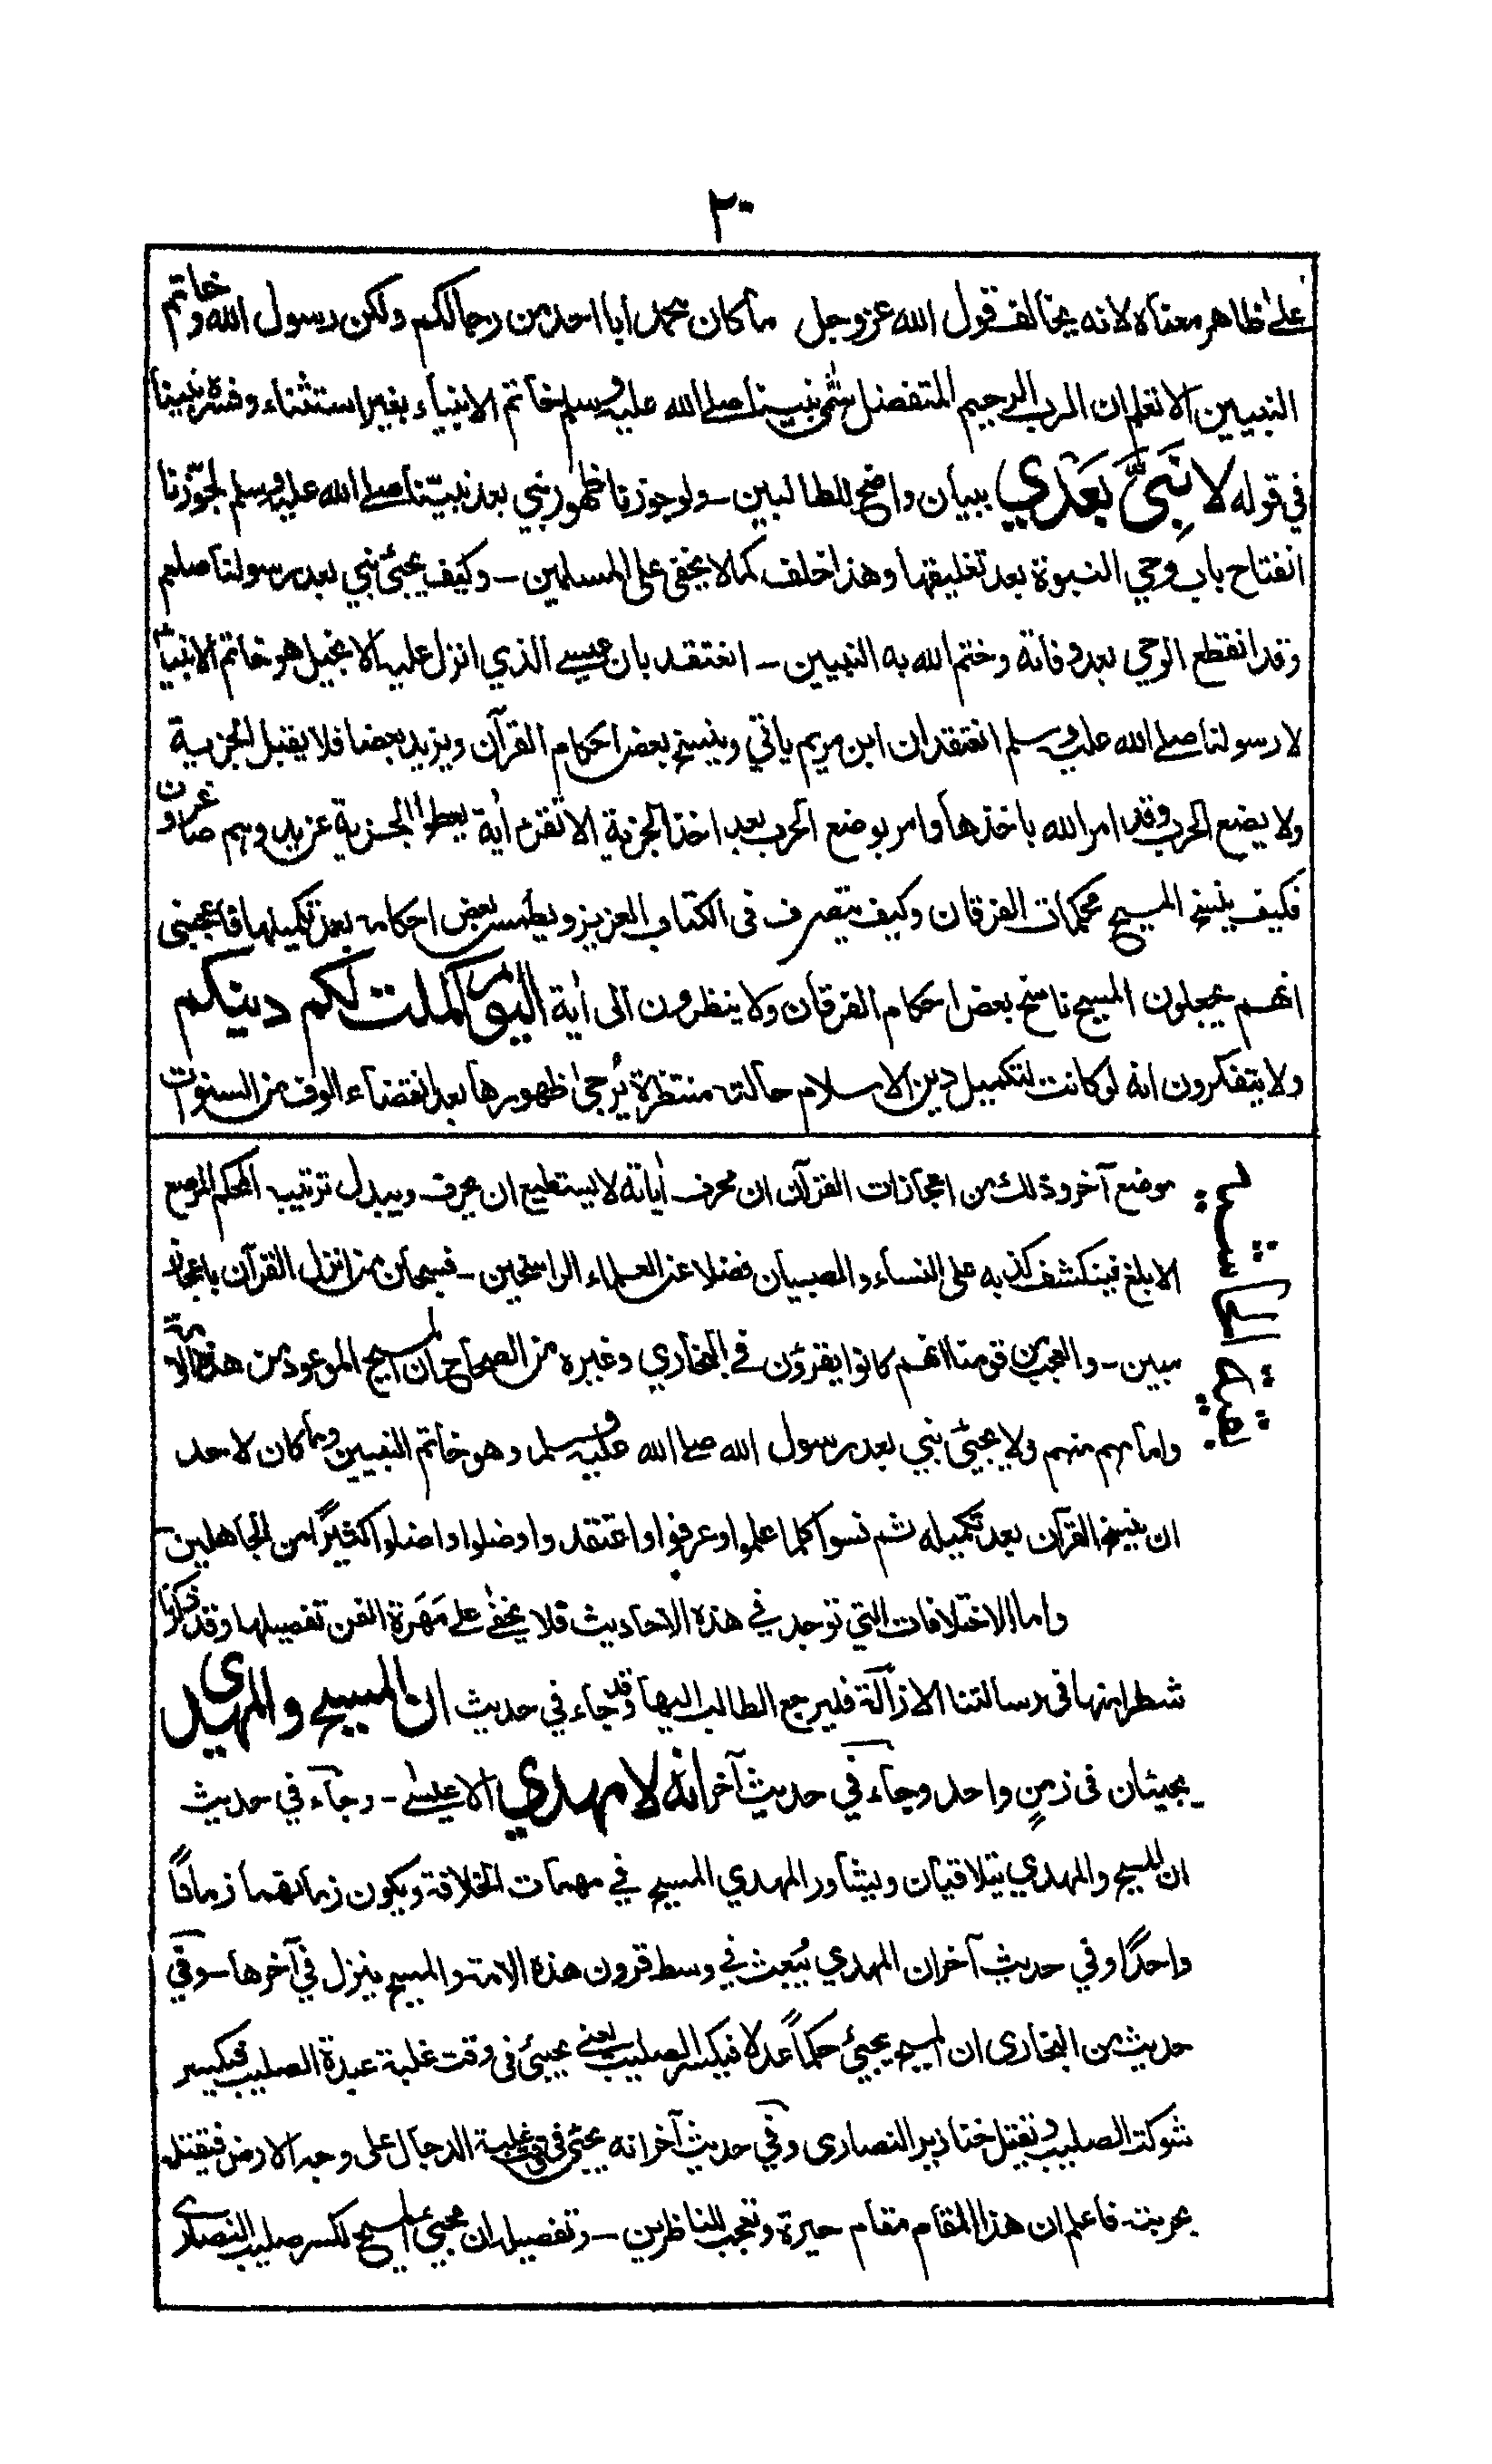 ٢٠
على ظاهر معناه لانه يخالف قول الله عز وجل ما كان محمد ابا احد من رجالكم ولكن رسول الله وخاتم
النبيين الا تعلم ان الرب الرحيم المتفضل سمى نبينا صلى الله عليه وسلم خاتم الانبياء بغير استثناء وفسره نبينا
في قوله لا نَبِيَّ بَعْدِي ببيان واضح للطالبين - ولو جوزنا ظهور نبي بعد نبينا صلى الله عليه وسلم لجوّزنا
انفتاح باب وحي النبوة بعد تغليقها وهذا خلف كما لا يخفى على المسلمين - وكيف يجيئ نبي بعد رسولنا صلعم
وقد انقطع الوحي بعد وفاته وختم الله به النبيين - انعتقد بان عيسى الذي انزل عليه الانجيل هو خاتم الانبياء
لا رسولنا صلى الله عليه وسلم انعتقد ان ابن مريم ياتي وينسخ بعض احكام القرآن ويزيد بعضا فلا يقبل الجزية
ولا يضع الحرب وقد امر الله باخذها وامر بوضع الحرب بعد اخذ الجزية الا تقرء اٰية يعطوا الجزية عن يد وهم صاغرون
فكيف ينسخ المسيح محكمات الفرقان وكيف يتصرف في الكتاب العزيز ويطمس بعض احكامه بعد تكميلها فاعجبنى
انهم يجعلون المسيح ناسخ بعض احكام الفرقان ولا ينظرون الى اٰية اليوم اكملت لكم دينكم
ولا يتفكرون انه لو كانت لتكميل دين الاسلام حالة منتظرة يُرجى ظهورها بعد انقضاء الوف من السنوات
بقية الحاشية
موضع آخر وذلك من اعجازات القرآن ان محرف اٰياته لا يستطيع ان يحرف ويبدل ترتيب المحكم المرصع
الابلغ فينكشف كذبه على النساء والصبيان فضلا عن العلماء الراسخين - فسبحان من انزل القرآن باعجاز
مبين - والعجب من قومنا انهم كانوا يقرؤن في البخاري وغيره من الصحاح ان المسيح الموعود من هذه الامة
وامامهم منهم ولا يجيئ نبي بعد رسول الله صلى الله عليه وسلم وهو خاتم النبيين وما كان لاحد
ان ينسخ القرآن بعد تكميله ثم نسوا كلما علموا وعرفوا واعتقدوا وضلوا واضلوا كثيرًا من الجاهلين -
واما الاختلافات التي توجد في هذه الاحاديث فلا يخفى على مَهَرة الفن تفصيلها وقد ذكرنا
شطرا منها في رسالتنا الازالة فليرجع الطالب اليها وقد جاء في حديث ان المسيح والمهدي
يجيئان في زمنٍ واحد وجاء في حديث آخر انه لا مهدي الا عيسى - وجاء في حديث
ان المسيح والمهدي يتلاقيان ويشاور المهدي المسيح في مهمات الخلافة ويكون زمانهما زمانًا
واحدًا وفي حديث آخر ان المهدي يُبعث في وسط قرون هذه الامة والمسيح ينزل في آخرها - وفي
حديث من البخاري ان المسيح يجيئ حكمًا عدلا فيكسر الصليب يعني يجيئ في وقت غلبة عبدة الصليب فيكسر
شوكة الصليب ويقتل خنازير النصارى وفي حديث آخر انه يجيئ في وقت غلبة الدجال على وجه الارض فيقتله
بحربته. فاعلم ان هذا المقام مقام حيرة وتعجب للناظرين - وتفصيله ان مجيئ المسيح لكسر صليب النصارى